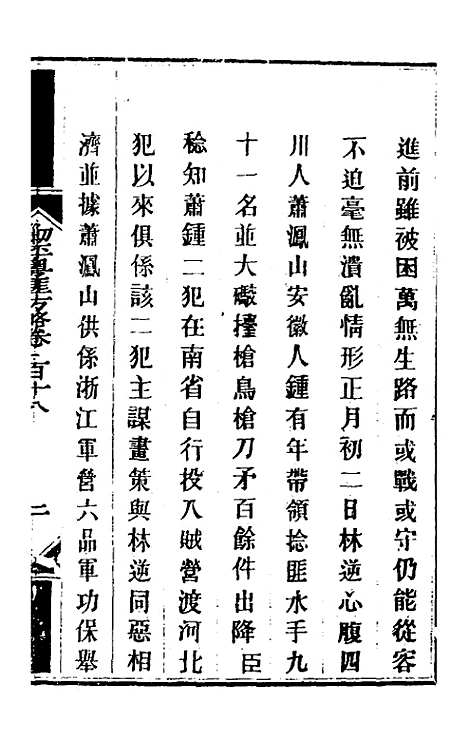 進前雖被困萬無生路而或戰或守仍能從容
不迫毫無潰亂情形正月初二日林逆心腹四
川人蕭鳯山安徽人鍾有年帶領捻匪水手九
十一名並大礮擡槍鳥槍刀矛百餘件出降臣
稔知蕭鍾二犯在南省自行投入賊營渡河北
犯以來俱係該二犯主謀畫策與林逆同惡相
濟並據蕭鳯山供係浙江軍營六品軍功保舉
二百十八
二